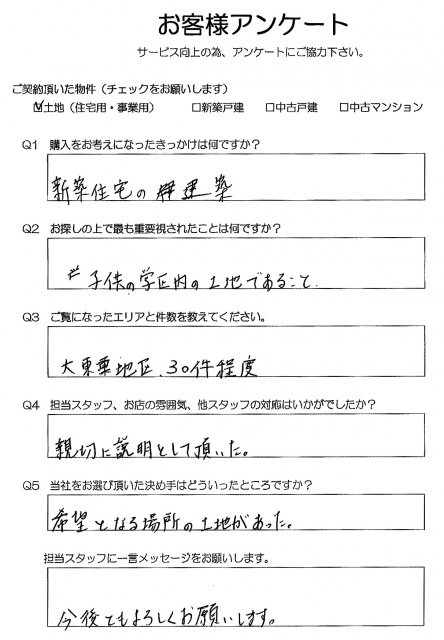 お客様アンケート
サービス向上の為、アンケートにご協力下さい。
ご契約頂いた物件（チェックをお願いします）
☑土地（住宅用・事業用） □新築戸建 □中古戸建 □中古マンション
Q1 購入をお考えになったきっかけは何ですか？
新築住宅の建築
Q2 お探しの上で最も重要視されたことは何ですか？
子供の学区内の土地であること.
Q3 ご覧になったエリアと件数を教えてください。
大東栗地区、30件程度
Q4 担当スタッフ、お店の雰囲気、他スタッフの対応はいかがでしたか？
親切に説明として頂いた。
Q5 当社をお選び頂いた決め手はどういったところですか？
希望となる場所の土地があった。
担当スタッフに一言メッセージをお願いします。
今後ともよろしくお願いします。